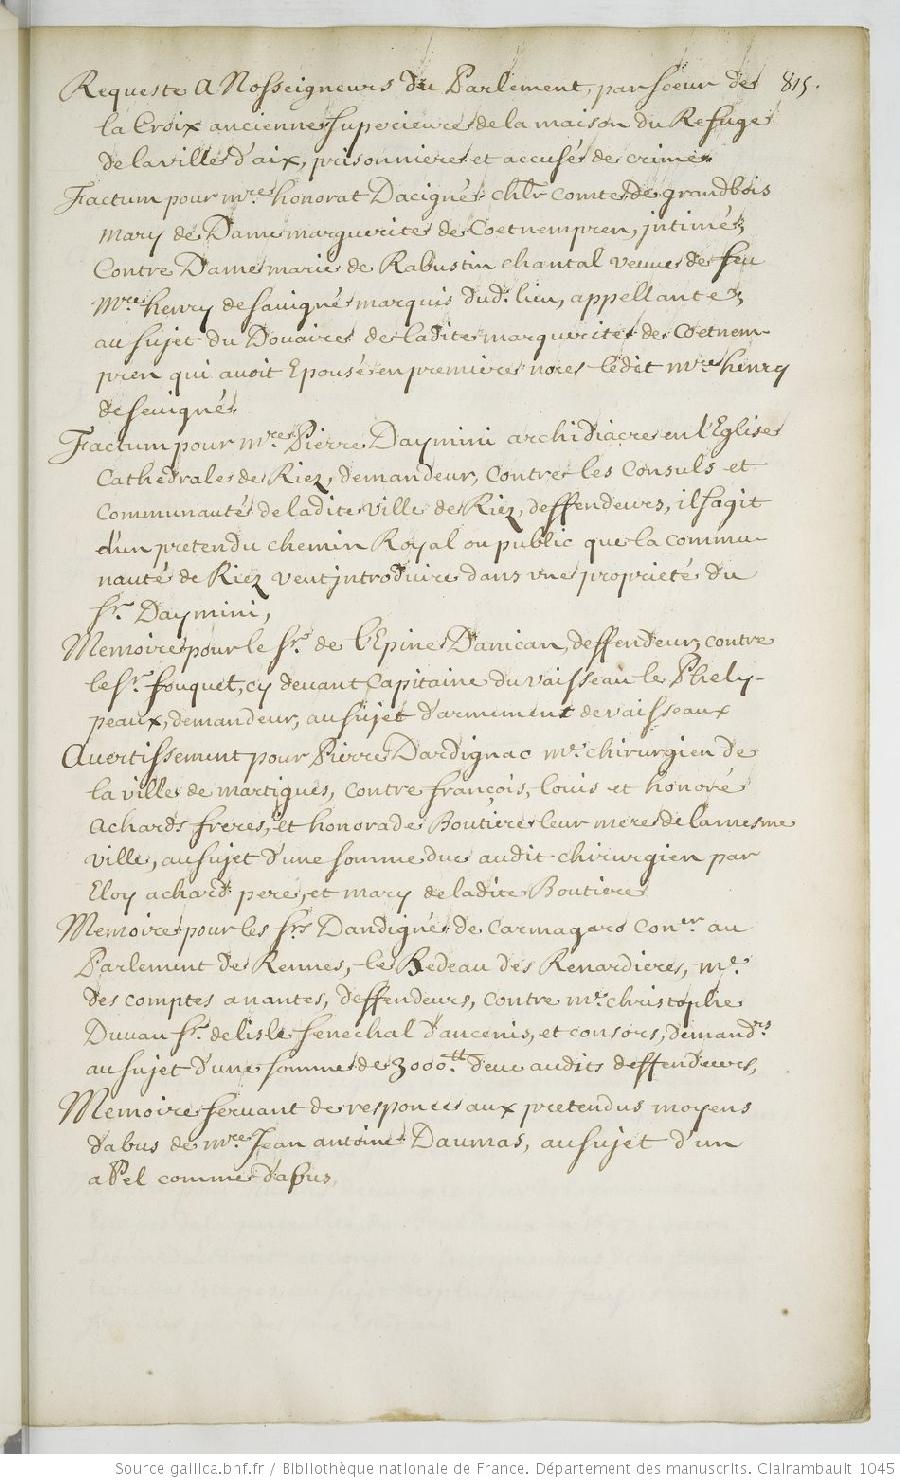 Requeste A Nosseigneurs du Parlement, par soeur de 815.
la Croix ancienne superieure de la maison du Refuge
de la ville d'aix, prisonniere et accusée de crime.
Factum pour mre. honorat Dacigné chlr comte de grandbois
mary de Dame marguerite de Coetnempren, jntimé,
Contre Dame marie de Rabustin chantal veuue de feu
Mre henry de seuigné marquis dud. lieu, appellante,
au sujet du Douaire de ladite marguerite de Coetnem-
pren qui auoit Epousé en premieres noces ledit mre henry
de seuigné.
Factum pour mre Pierre Daymini archidiacre en l'Eglise
Cathedrale de Riez, demandeur, contre les Consuls et
Communauté de ladite ville de Riez, deffendeurs, il s'agit
d'un pretendu chemin Royal ou public que la commu-
nauté de Riez veut jntroduire dans une proprieté du
sr. Daymini,
Memoire pour le sr. de l'Epine Danican, deffendeur, contre
le sr. fouquet, cy deuant Capitaine du vaisseau le Phely-
peaux, demandeur, au sujet d'armement de vaisseaux
Auertissement pour Pierre Dardignac me. chirurgien de
la ville de martigues, contre francois, louis et honoré
Achards freres, et honorade Boutiere leur mere de la mesme
ville, au sujet d'une somme due audit chirurgien par
Eloy achard pere, et mary de ladite Boutiere
Memoire pour les srs Dandigné de Carmagaro Coner au
Parlement de Rennes, le Bedeau des Renardieres, me.
des comptes a nantes, deffendeurs, contre me. christophe
Duuau sr. de lisle senechal d'ancenis, et consors, demandrs
au sujet d'une somme de 3000.tt deue audits deffendeurs,
Memoire seruant de responce aux pretendus moyens
d'abus de mre Jean antoine Daumas, au sujet d'un
apel comme d'abus.
Source gallica.bnf.fr / Bibliothèque nationale de France. Département des manuscrits. Clairambault 1045